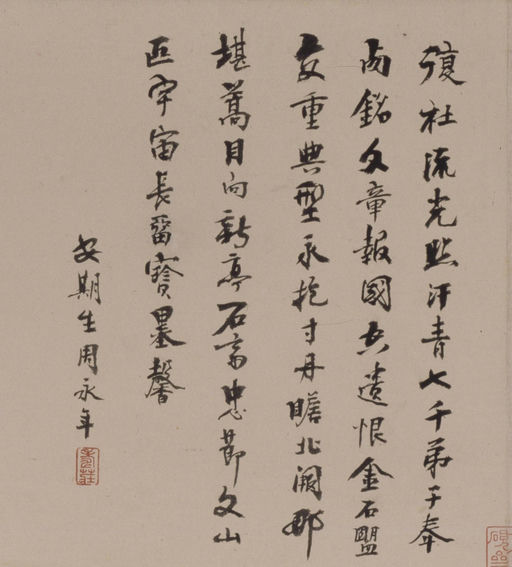 復社流光照汗青七千弟子奉
卥銘文章報國遺恨金石盟
交重典型永抱寸丹瞻北闕那
堪蒿目向新亭石齋忠節文山
匹宇宙長畱寶墨馨
安期生周永年